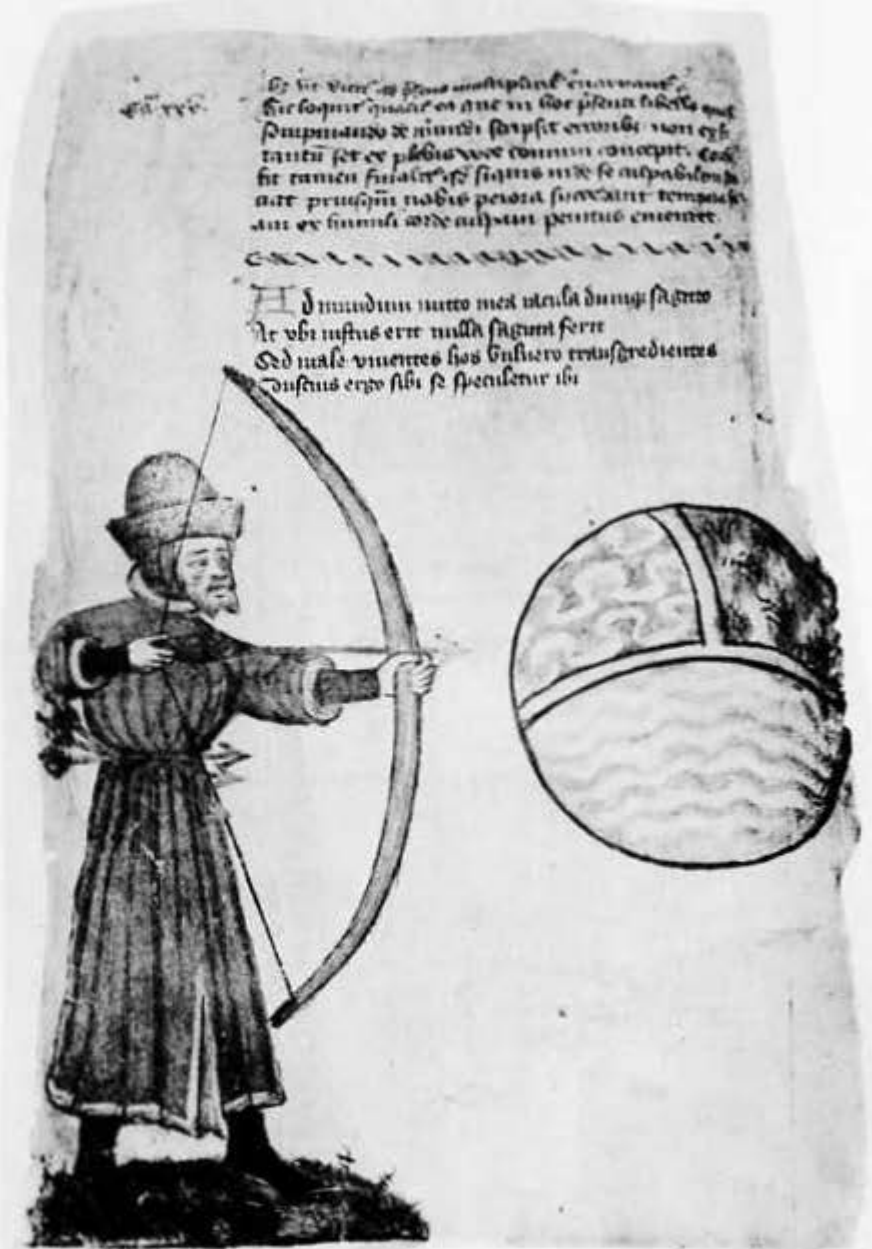 Ca xxv.
Hic loquit' qualit' ea que in hoc p'senti libello quasi
sompniando de mundi scripsit erroribз non ex se
tantu set ex plebis voce comuni concepit.
tamen finalit' qd' siquis inde se culpabilem
ciat priusqm nobis peiora succedant tempora
am ex humili corde culpam penitus emendet.
Ad mundum mitto mea iacula dumqз sagitto
At vbi iustus erit nulla sagitta ferit
Sed male viuentes hos vulnero transgredientes
Conscius ergo sibi se speculetur ibi